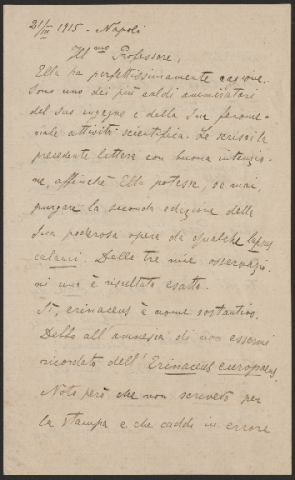 21/III 1915 - Napoli
Ill.mo Professore,
Ella ha perfettissimamente ragione.
Sono uno dei più caldi ammiratori
del suo ingegno e della sua fenome-
nale attività scientifica. Le scrissi la
precedente lettera con buona intenzio-
ne, affinchè Ella potesse, se mai,
purgare la seconda edizione della
sua poderosa opera da qualche lapsus
calami. Delle tre mie osservazio-
ni una è risultata esatta.
Sì, erinaceus è nome sostantivo.
Debbo all'amnesia di non essermi
ricordato dell'Erinaceus europaeus.
Noto però che non scrivevo per
la stampa e che caddi in errore